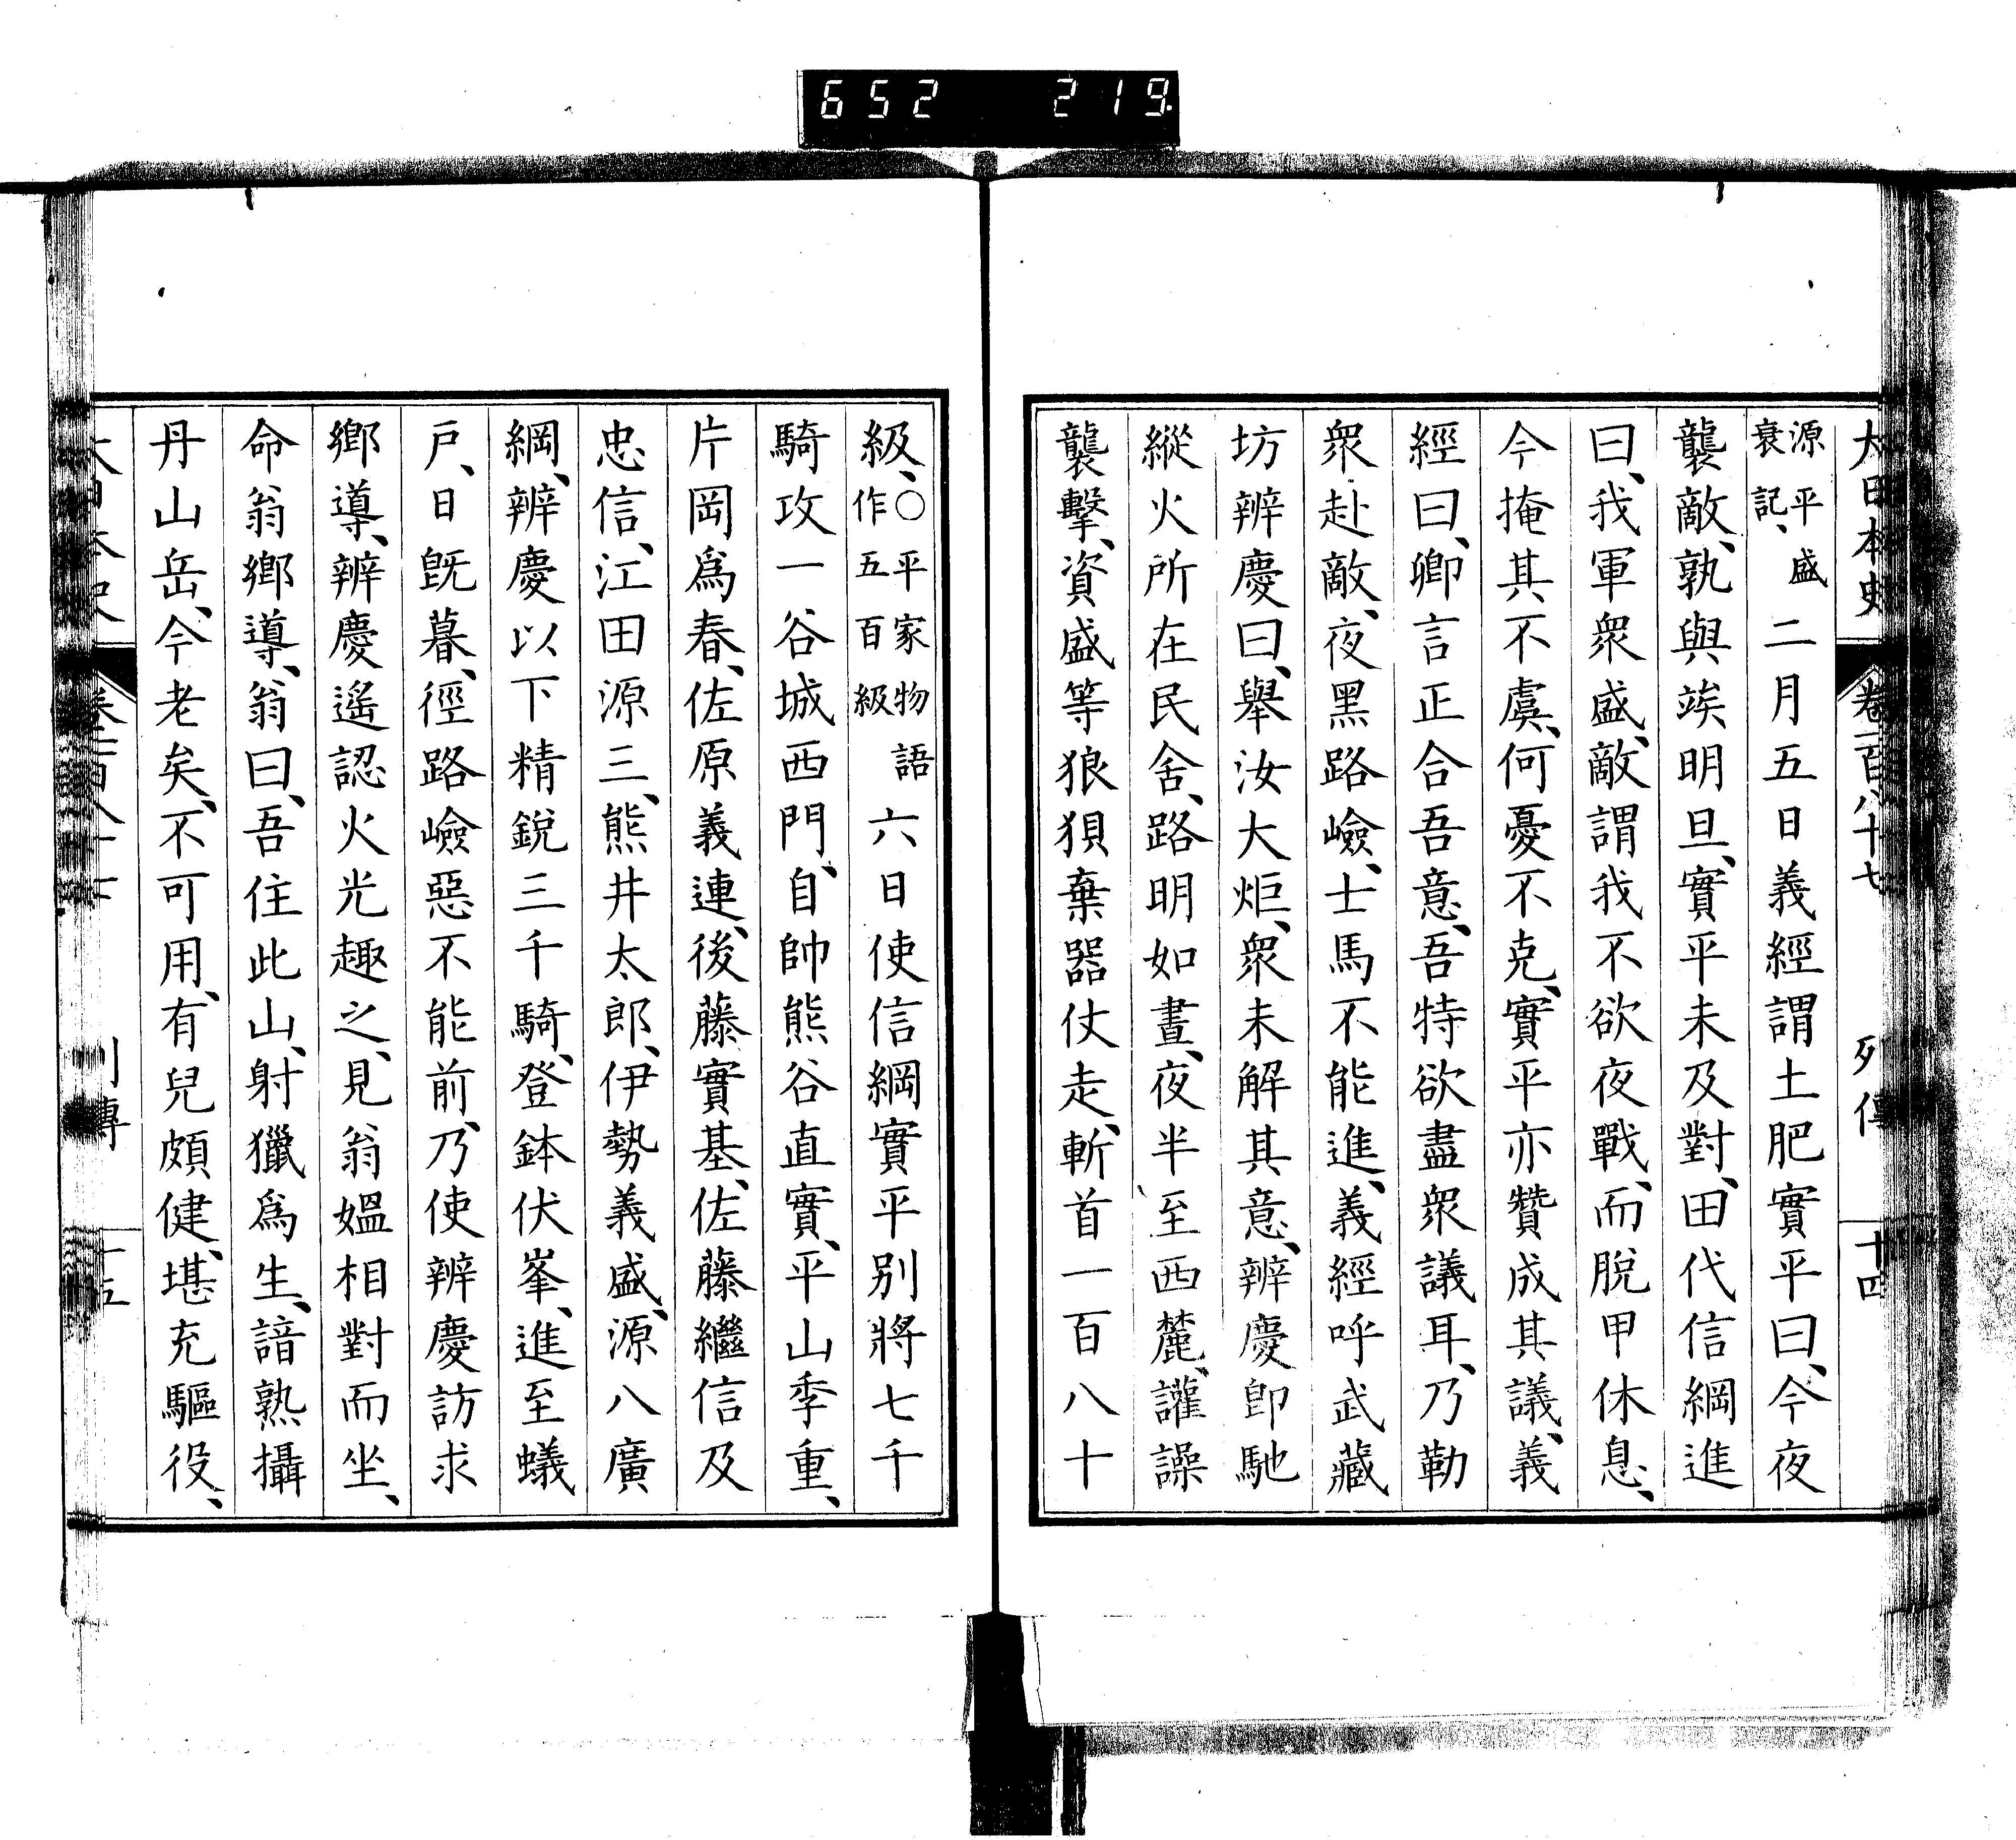 652 219
大日本史 卷一百八十七 列傳 十四
源平盛衰記、二月五日義經謂土肥實平曰、今夜
襲敵、孰與竢明旦、實平未及對、田代信綱進
曰、我軍衆盛、敵謂我不欲夜戰、而脫甲休息、
今掩其不虞、何憂不克、實平亦贊成其議、義
經曰、卿言正合吾意、吾特欲盡衆議耳、乃勒
衆赴敵、夜黑路嶮、士馬不能進、義經呼武藏
坊辨慶曰、舉汝大炬、衆未解其意、辨慶卽馳
縱火所在民舍、路明如晝、夜半至西麓、讙譟
襲擊、資盛等狼狽棄器仗走、斬首一百八十
級、○平家物語作五百級六日使信綱實平別將七千
騎攻一谷城西門、自帥熊谷直實、平山季重、
片岡爲春、佐原義連、後藤實基、佐藤繼信及
忠信、江田源三、熊井太郎、伊勢義盛、源八廣
綱、辨慶以下精銳三千騎、登鉢伏峯、進至蟻
戶、日旣暮、徑路嶮惡不能前、乃使辨慶訪求
鄉導、辨慶遙認火光趣之、見翁媼相對而坐、
命翁鄉導、翁曰、吾住此山、射獵爲生、諳熟攝
丹山岳、今老矣、不可用、有兒頗健、堪充驅役、
大日本史 卷一百八十七 列傳 十五